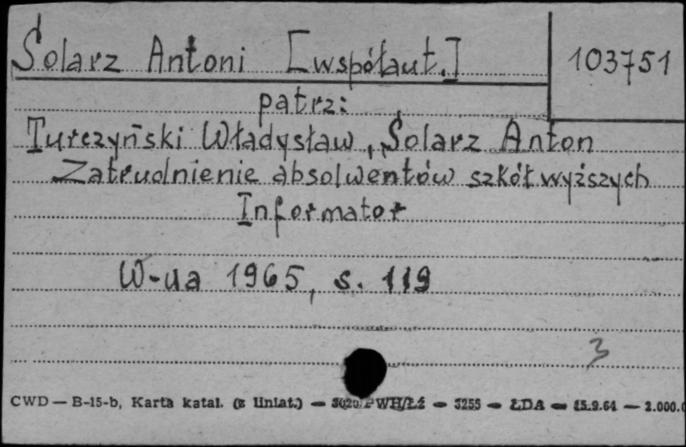 Solarz Antoni [współaut.]
103751
patrz:
Turczyński Władysław, Solarz Anton
Zatrudnienie absolwentów szkół wyższych
Informator
W-ua 1965, s. 119
3
CWD — B-15-b, Karta katal. (z liniat.) — PWH/Łż — 3255 — ŁDA — 15.9.64 — 2.000.0